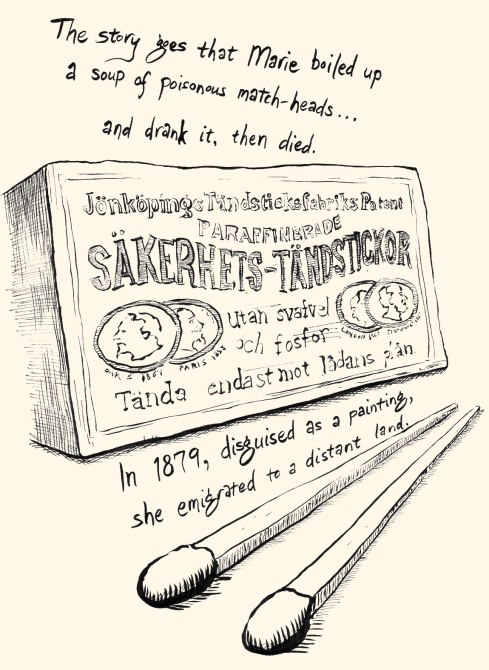 The story goes that Marie boiled up
a soup of poisonous match-heads...
and drank it, then died.
Jönköpings Tändsticksfabriks Patent
PARAFFINERADE
SÄKERHETS-TÄNDSTICKOR
utan svafvel
och fosfor
PARIS
Tända endast mot lådans plån
In 1879, disguised as a painting,
she emigrated to a distant land.